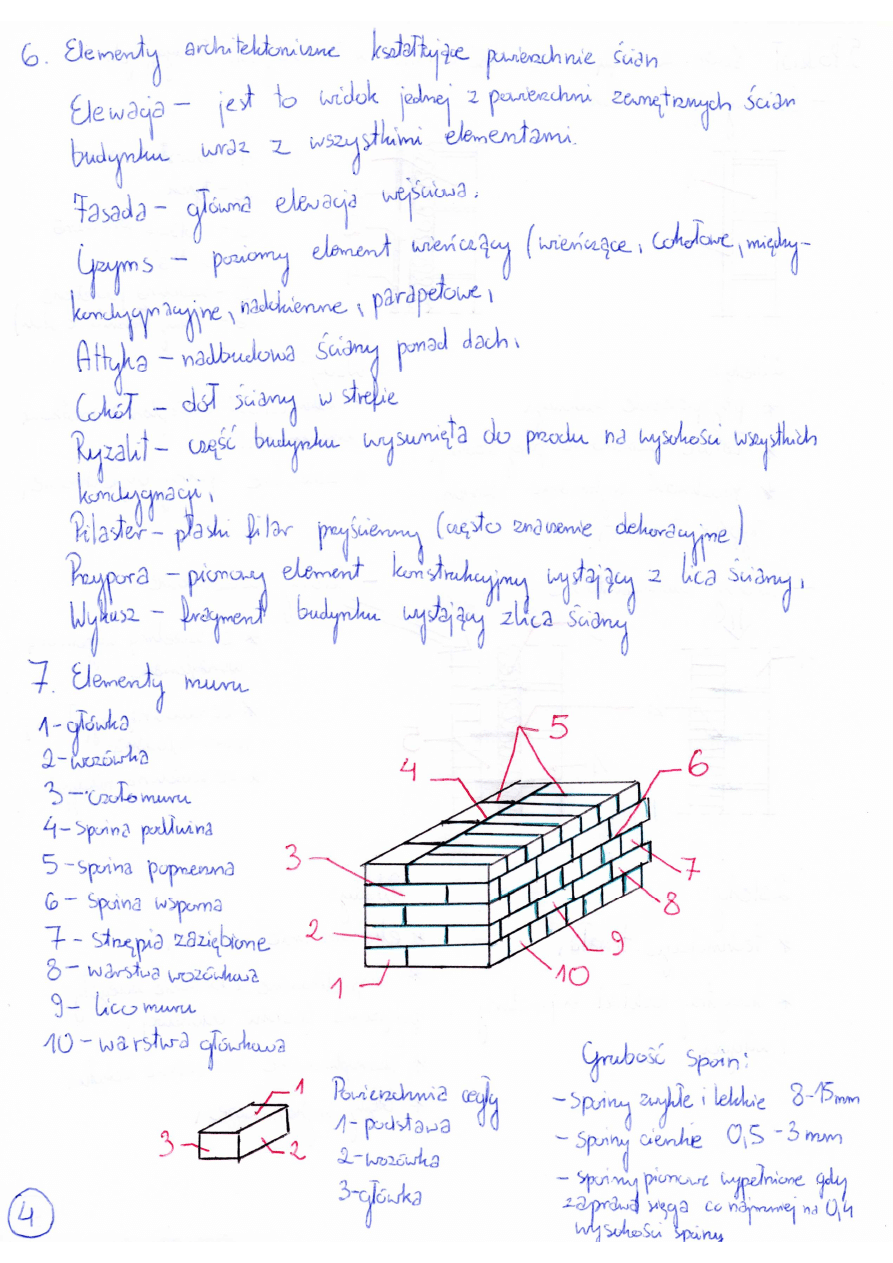 6. Elementy architektoniczne kształtujące powierzchnie ścian
Elewacja – jest to widok jednej z powierzchni zewnętrznych ścian
budynku wraz z wszystkimi elementami.
Fasada – główna elewacja wejściowa.
Gzyms – poziomy element wieńczący (wieńczące, cokołowe, między-
kondygnacyjne, nadokienne, parapetowe,
Attyka – nadbudowa ściany ponad dach.
Cokół – dół ściany w strefie
Ryzalit – część budynku wysunięta do przodu na wysokości wszystkich
kondygnacji,
Pilaster – płaski filar przyścienny (często znaczenie dekoracyjne)
Przypora – pionowy element konstrukcyjny wystający z lica ściany,
Wykusz – fragment budynku wystający z lica ściany
7. Elementy muru
1 – główka
2 – wozówka
3 – czoło muru
4 – spoina podłużna
5 – spoina poprzeczna
6 – spoina wsporna
7 – strzępia zazębione
8 – warstwa wozówkowa
9 – lico muru
10 – warstwa główkowa
5
4
6
3
7
8
2
9
10
1
1
3
2
Powierzchnia cegły
1 – podstawa
2 – wozówka
3 – główka
Grubość spoin:
– spoiny zwykłe i lekkie 8-15mm
– spoiny cienkie 0,5 - 3 mm
– spoiny pionowe wypełnione gdy
zaprawa sięga co najmniej na 0,4
wysokości spoiny
4